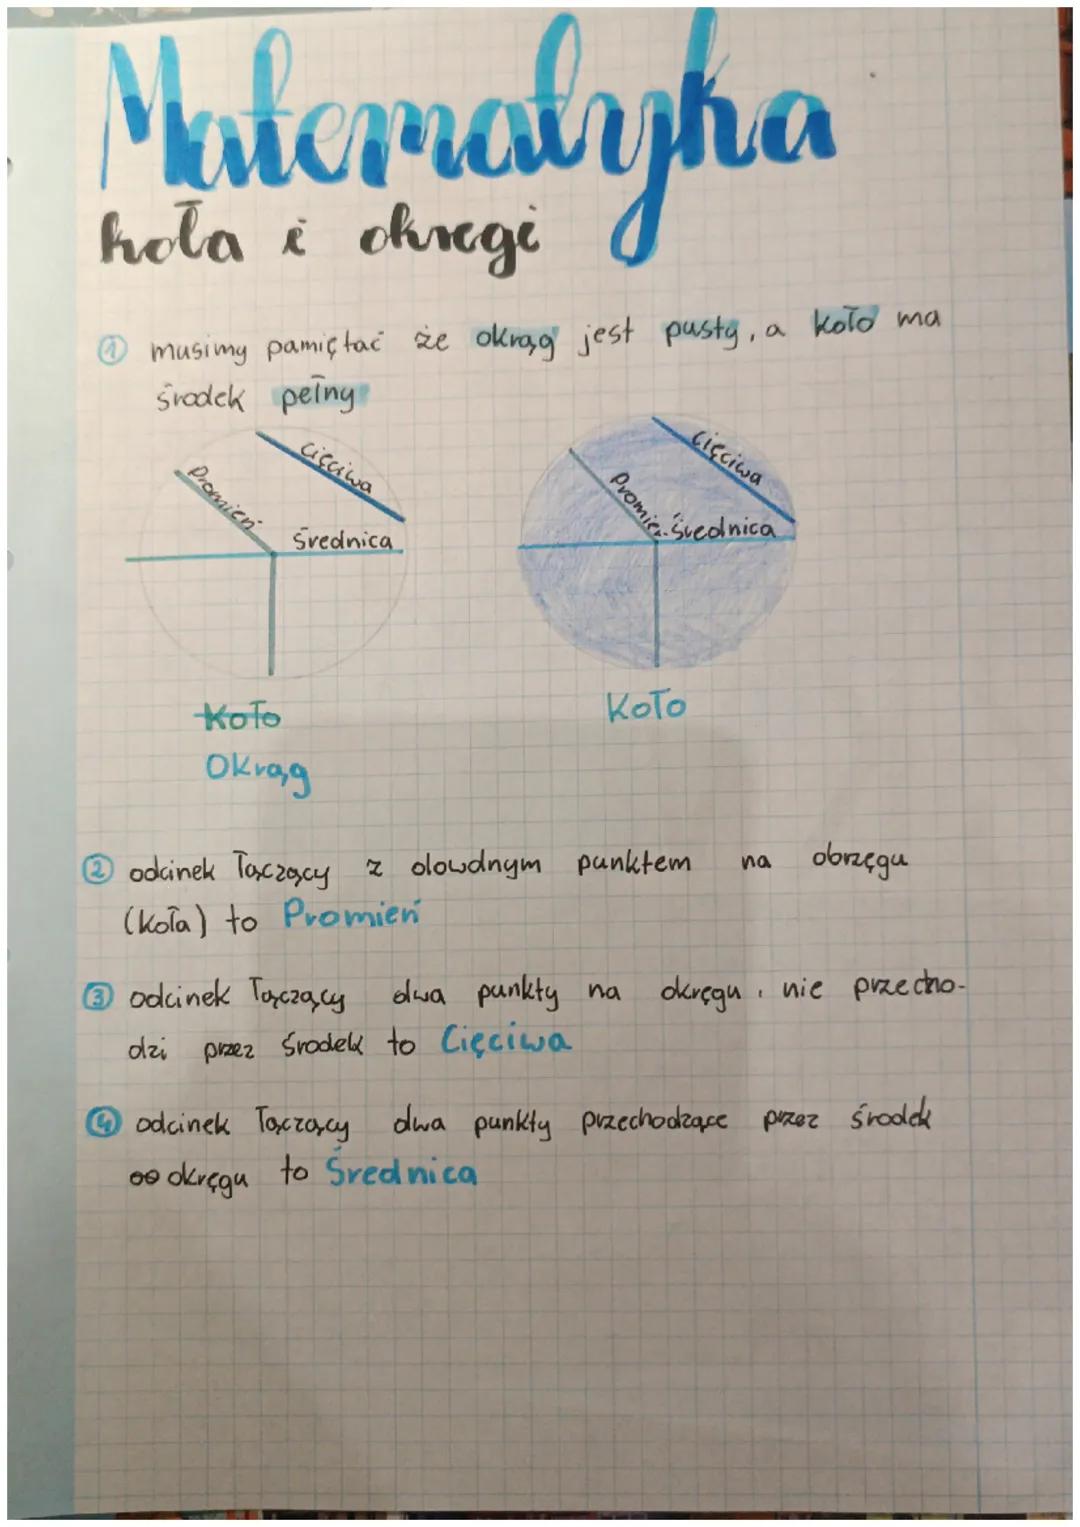 Matematyka
koła i okręgi
① musimy pamiętać że okrąg jest pusty, a koło ma
środek pełny
Cięciwa
Promień
Średnica
Cięciwa
Promień
Średnica
Koło
Okrąg
Koło
② odcinek łączący z dowolnym punktem na obrzęgu
(koła) to Promień
③ odcinek łączący dwa punkty na okręgu, nie przecho-
dzi przez środek to Cięciwa
④ odcinek łączący dwa punkty przechodzące przez środek
okręgu to Średnica